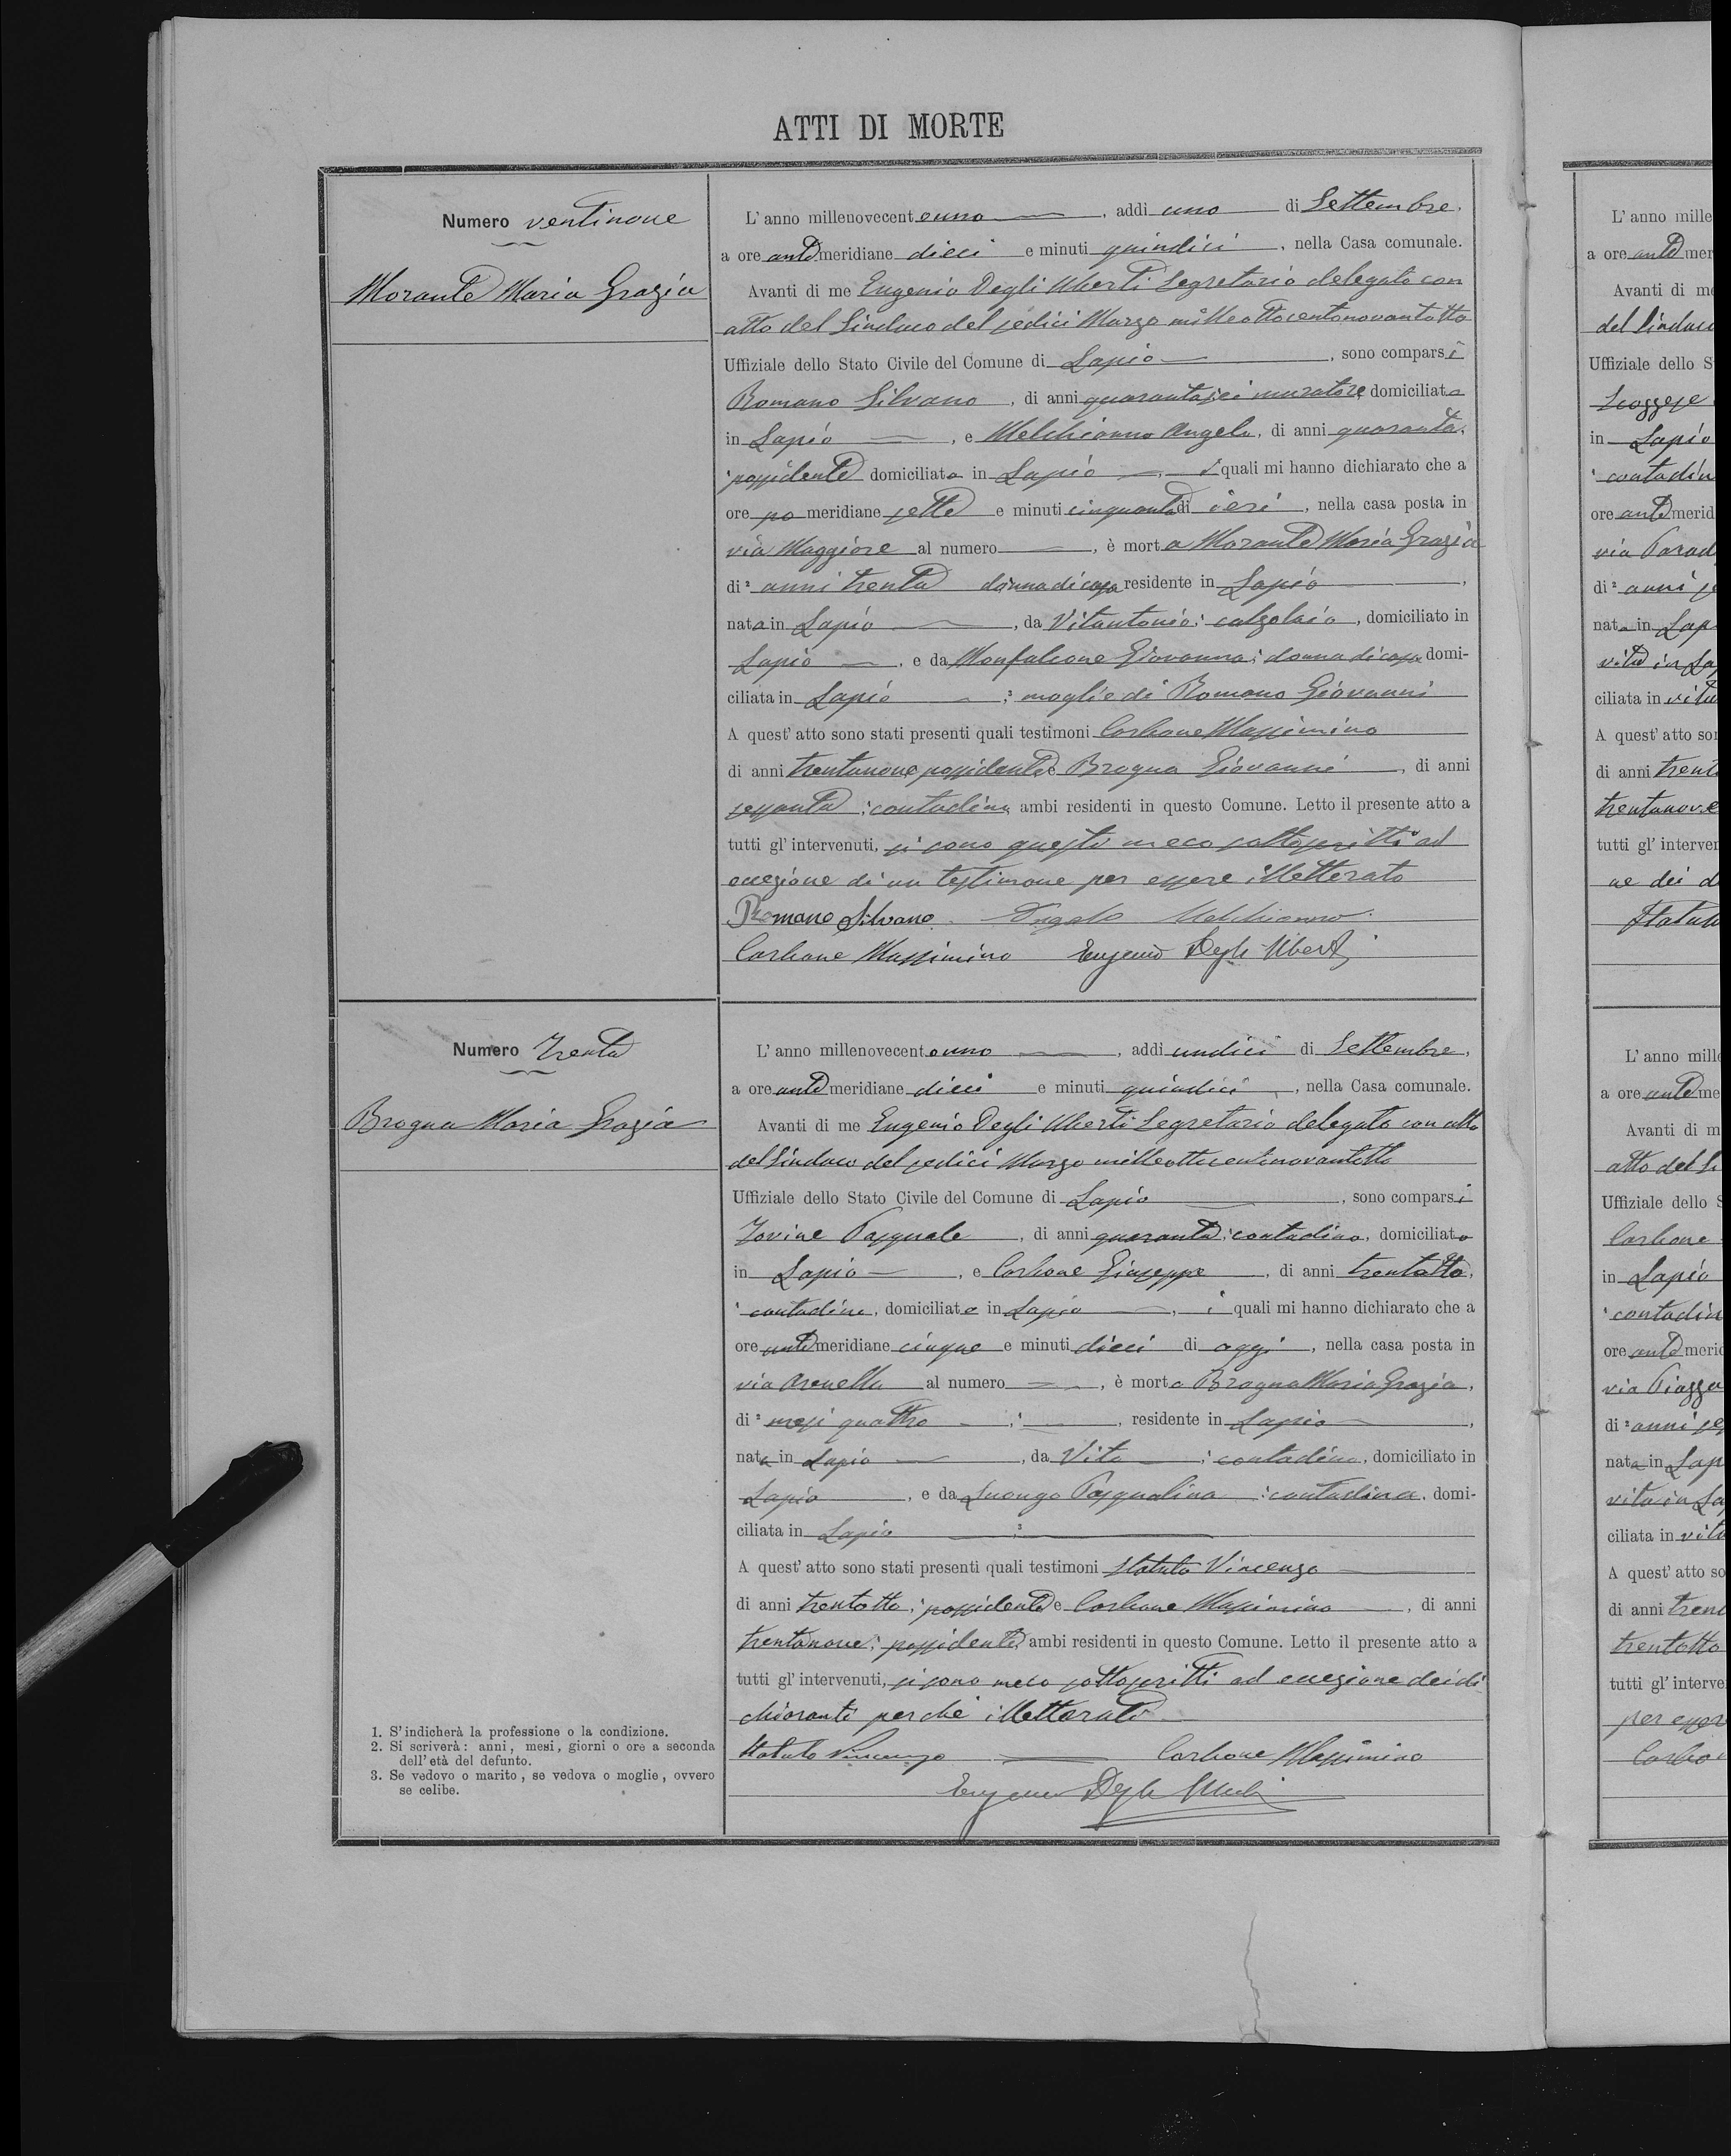 ATTI DI MORTE
Numero ventinove
Morante Maria Grazia
L'anno millenovecentouno, addi uno di Settembre,
a ore antemeridiane dieci e minuti quindici, nella Casa comunale.
Avanti di me Eugenio Degli Uberti Segretario delegato con
atto del Sindaco del sedici Marzo milleottocentonovantotto
Uffiziale dello Stato Civile del Comune di Lapio, sono comparsi
Romano Silvano, di anni quarantasei muratore domiciliato
in Lapio, e Melchionno Angelo, di anni quaranta,
possidente domiciliato in Lapio, i quali mi hanno dichiarato che a
ore pomeridiane sette e minuti cinquanta di ieri, nella casa posta in
via Maggiore al numero, è morta Morante Maria Grazia
di² anni trenta donna di casa residente in Lapio,
nata in Lapio, da Vitantonio; calzolaio, domiciliato in
Lapio, e da Monfalcone Giovanna; donna di casa domi-
ciliata in Lapio;³ moglie di Romano Giovanni
A quest'atto sono stati presenti quali testimoni Carbone Massimino
di anni trentanove possidente e Brogna Giovanni, di anni
sessanta; contadino, ambi residenti in questo Comune. Letto il presente atto a
tutti gl'intervenuti, si sono questi meco sottoscritti ad
eccezione di un testimone per essere illetterato
Romano Silvano Angelo Melchionno
Carbone Massimino Eugenio Degli Uberti
Numero Trenta
Brogna Maria Grazia
L'anno millenovecentouno, addi undici di Settembre,
a ore antemeridiane dieci e minuti quindici, nella Casa comunale.
Avanti di me Eugenio Degli Uberti Segretario delegato con atto
del Sindaco del sedici Marzo milleottocentonovantotto
Uffiziale dello Stato Civile del Comune di Lapio, sono comparsi
Iovine Pasquale, di anni quaranta; contadino, domiciliato
in Lapio, e Carbone Giuseppe, di anni trentotto,
contadino, domiciliato in Lapio, i quali mi hanno dichiarato che a
ore antemeridiane cinque e minuti dieci di oggi, nella casa posta in
via Arenella al numero, è morta Brogna Maria Grazia,
di² mesi quattro, residente in Lapio,
nata in Lapio, da Vito; contadino, domiciliato in
Lapio, e da Luongo Pasqualina; contadina, domi-
ciliata in Lapio ³
A quest'atto sono stati presenti quali testimoni Statuto Vincenzo
di anni trentotto; possidente e Carbone Massimino, di anni
trentanove; possidente, ambi residenti in questo Comune. Letto il presente atto a
tutti gl'intervenuti, si sono meco sottoscritti ad eccezione dei di
chiaranti perché illetterati
Statuto Vincenzo Carbone Massimino
Eugenio Degli Uberti
1. S'indicherà la professione o la condizione.
2. Si scriverà: anni, mesi, giorni o ore a seconda
dell'età del defunto.
3. Se vedovo o marito, se vedova o moglie, ovvero
se celibe.
L'anno mille
a ore ante mer
Avanti di me
del Sindaco
Uffiziale dello S
in Lapio
contadin
ore ante merid
di² anni
nata in Lap
ciliata in vita
A quest'atto son
di anni trent
trentanove
tutti gl'interven
ne dei d
Statuto
L'anno mille
a ore ante me
Avanti di m
atto del Si
Uffiziale dello S
Carbone
in Lapio
contadin
ore ante merid
via Piazza
di² anni
nata in Lap
vita in La
ciliata in vita
A quest'atto so
di anni trent
trentotto
tutti gl'interve
per esser
Carbon